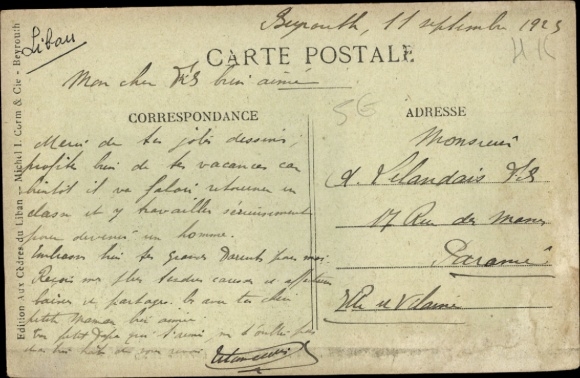 Liban
Beyrouth, 11 septembre 1923
CARTE POSTALE
Mon cher Fils bien aimé
CORRESPONDANCE
Merci de tes jolis dessins,
profite bien de tes vacances car
bientôt il va falloir retourner en
classe et y travailler sérieusement
pour devenir un homme.
Embrasse bien tes Grands Parents pour moi.
Reçois mes plus tendres caresses et affectueux
baisers à partager avec ta chère
petite Maman bien aimée.
Ton petit Papa qui t'aime, ne t'oublie pas
bien hâte de vous revoir
ADRESSE
Monsieur
A. Lelandais Fils
17 Rue des
Paramé
Ille et Vilaine
Edition Aux Cèdres du Liban — Michel I. Corm & Cie - Beyrouth